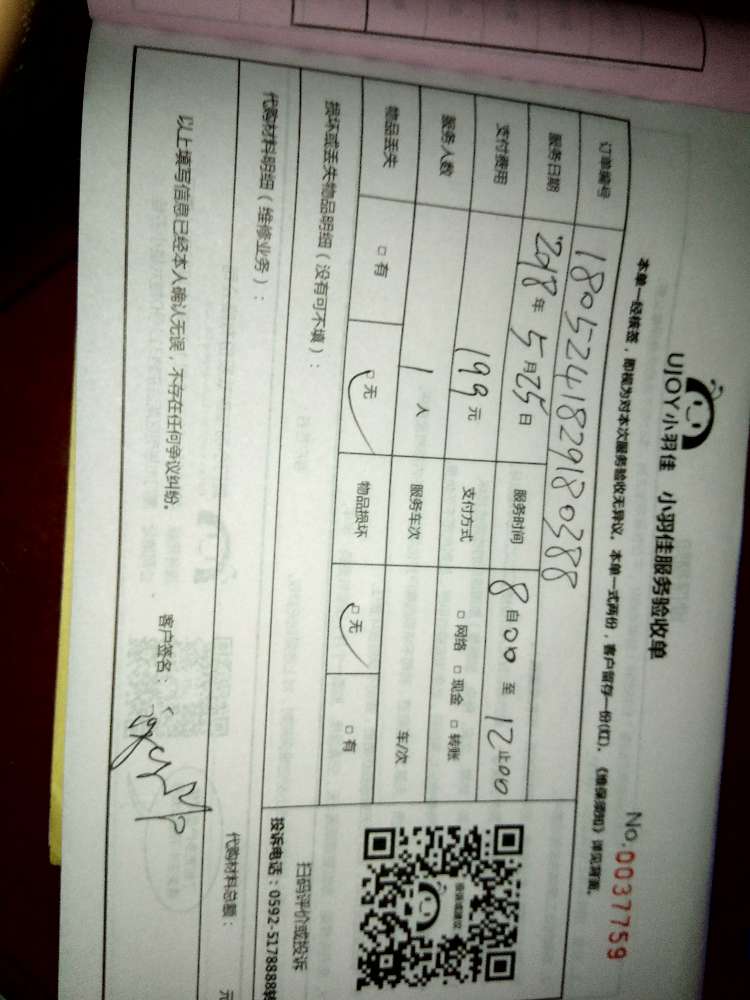 UJOY小羽佳 小羽佳服务验收单
No.0037759
本单一经核签，即视为对本次服务验收无异议。本单一式两份，客户留存一份(红)。《维保须知》详见背面。
订单编号 1805241829180388
服务日期 2018年5月25日 服务时间 8自00至12止00
支付费用 199元 支付方式 □网络 □现金 □转账
服务人数 1人 服务车次 车/次
物品丢失 □有 □无 物品损坏 □无 □有
损坏或丢失物品明细（没有可不填）：
扫码评价或投诉
投诉电话：0592-5178888转
代购材料明细（维修业务）：
代购材料总额： 元
以上填写信息已经本人确认无误，不存在任何争议纠纷。 客户签名：